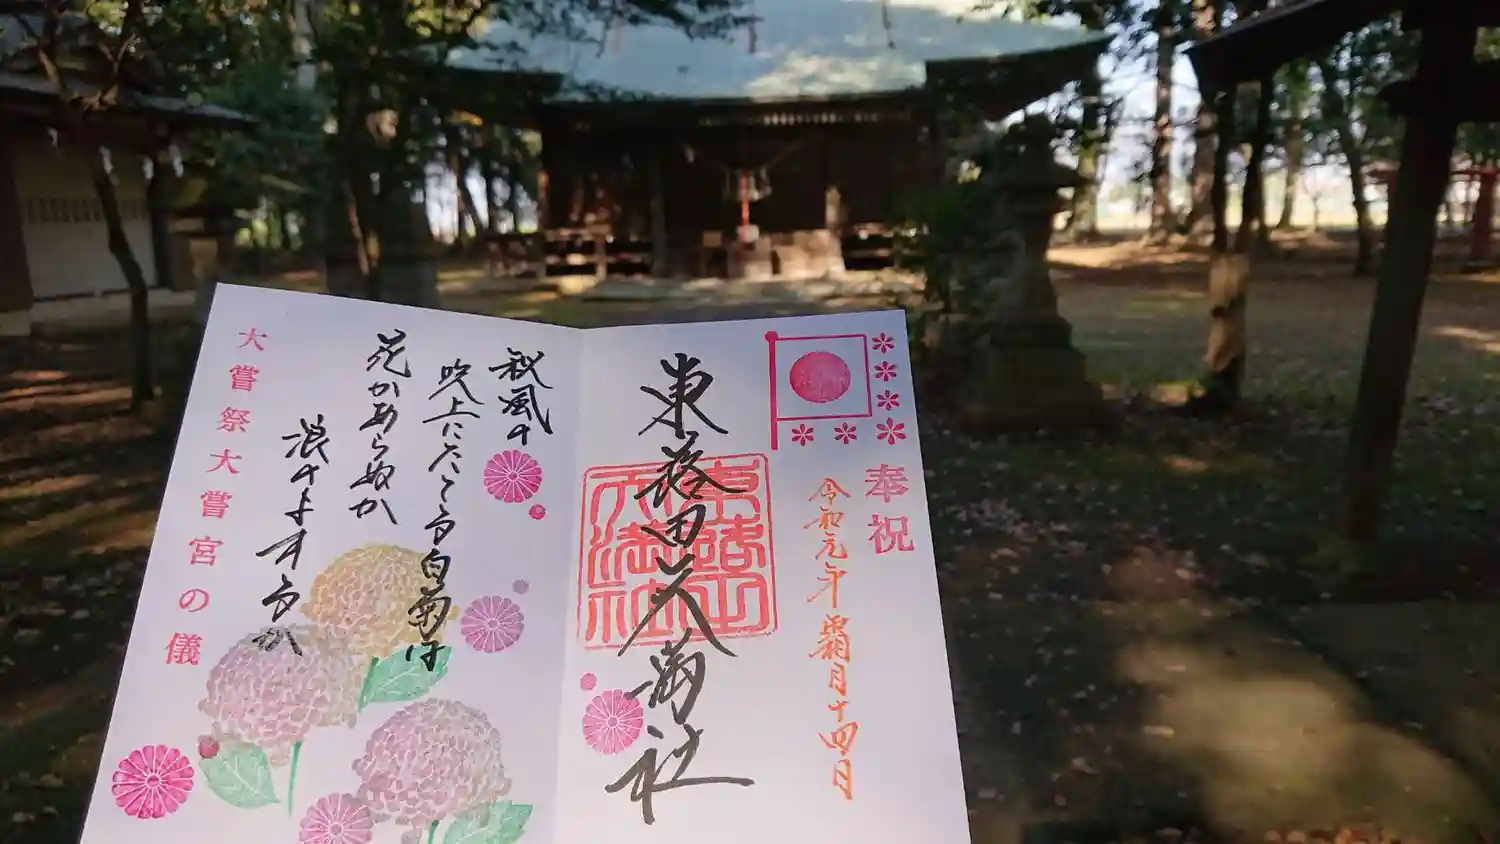 奉祝
令和元年霜月十四日
東蕗田天満社
東蕗田
天満社
秋風の
吹上にたてる白菊は
花かあらぬか
浪のよするか
大嘗祭大嘗宮の儀